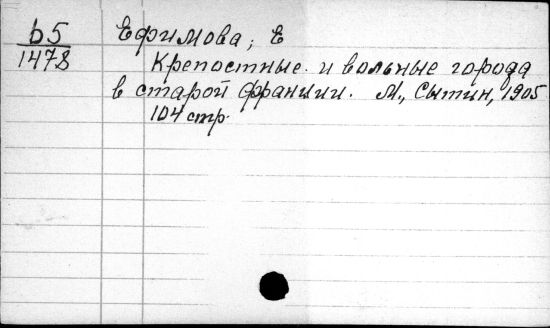 Б5
1478
Ефимова, Е
Крепостные и вольные города
в старой франции. М., Сытин, 1905
104 стр.